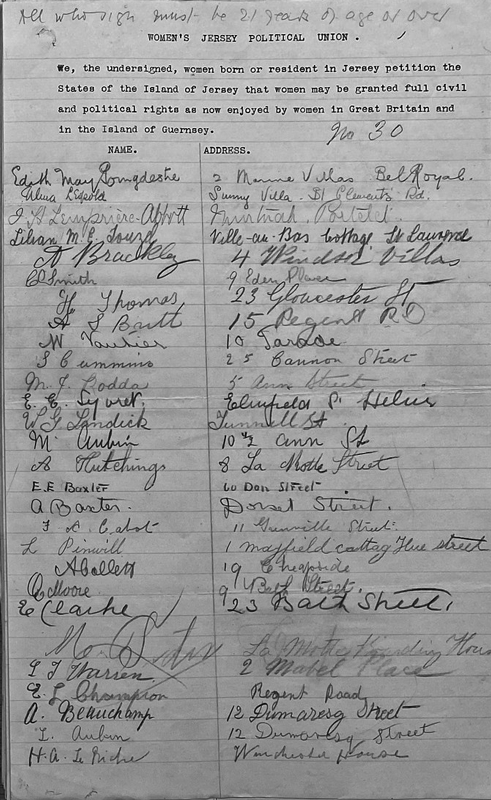 All who sign must be 21 years of age or over
WOMEN'S JERSEY POLITICAL UNION.
We, the undersigned, women born or resident in Jersey petition the
States of the Island of Jersey that women may be granted full civil
and political rights as now enjoyed by women in Great Britain and
in the Island of Guernsey.
No 30
NAME. ADDRESS.
Edith May Poingdestre 2 Marine Villas Bel Royal.
Sunny Villa. St Clement's Rd.
Lempriere-Abbott Portelet
Lilian M. E. Touzel Ville-au-Bas Cottage St Lawrence
A Brackley 4 Windsor Villas
Smith 9 Eden Place
Thomas 23 Gloucester St
A S Bartt 15 Regent RD
W Vautier 10 Parade
S Cummins 25 Cannon Street
M. F. 5 Ann Street
E. E. Syvret St Helier
W. G. Landick Tunnell St
M. Aubin 10½ Ann St
A Hutchings 8 La Motte Street
E.E Baxter 60 Don Street
A Baxter. Dorset Street.
Cabot 11 Grenville Street.
L Pinwill 1 Mayfield cottage Hue street
A Collett 19 Cheapside
Moore 9 Bath Street.
E Clarke 23 Bath Street.
La Motte Boarding House
Warren 2 Mabel Place
E. L Champion Regent Road
A. Beauchamp 12 Dumaresq Street
Aubin 12 Dumaresq Street
H. A. Le Riche Winchester House